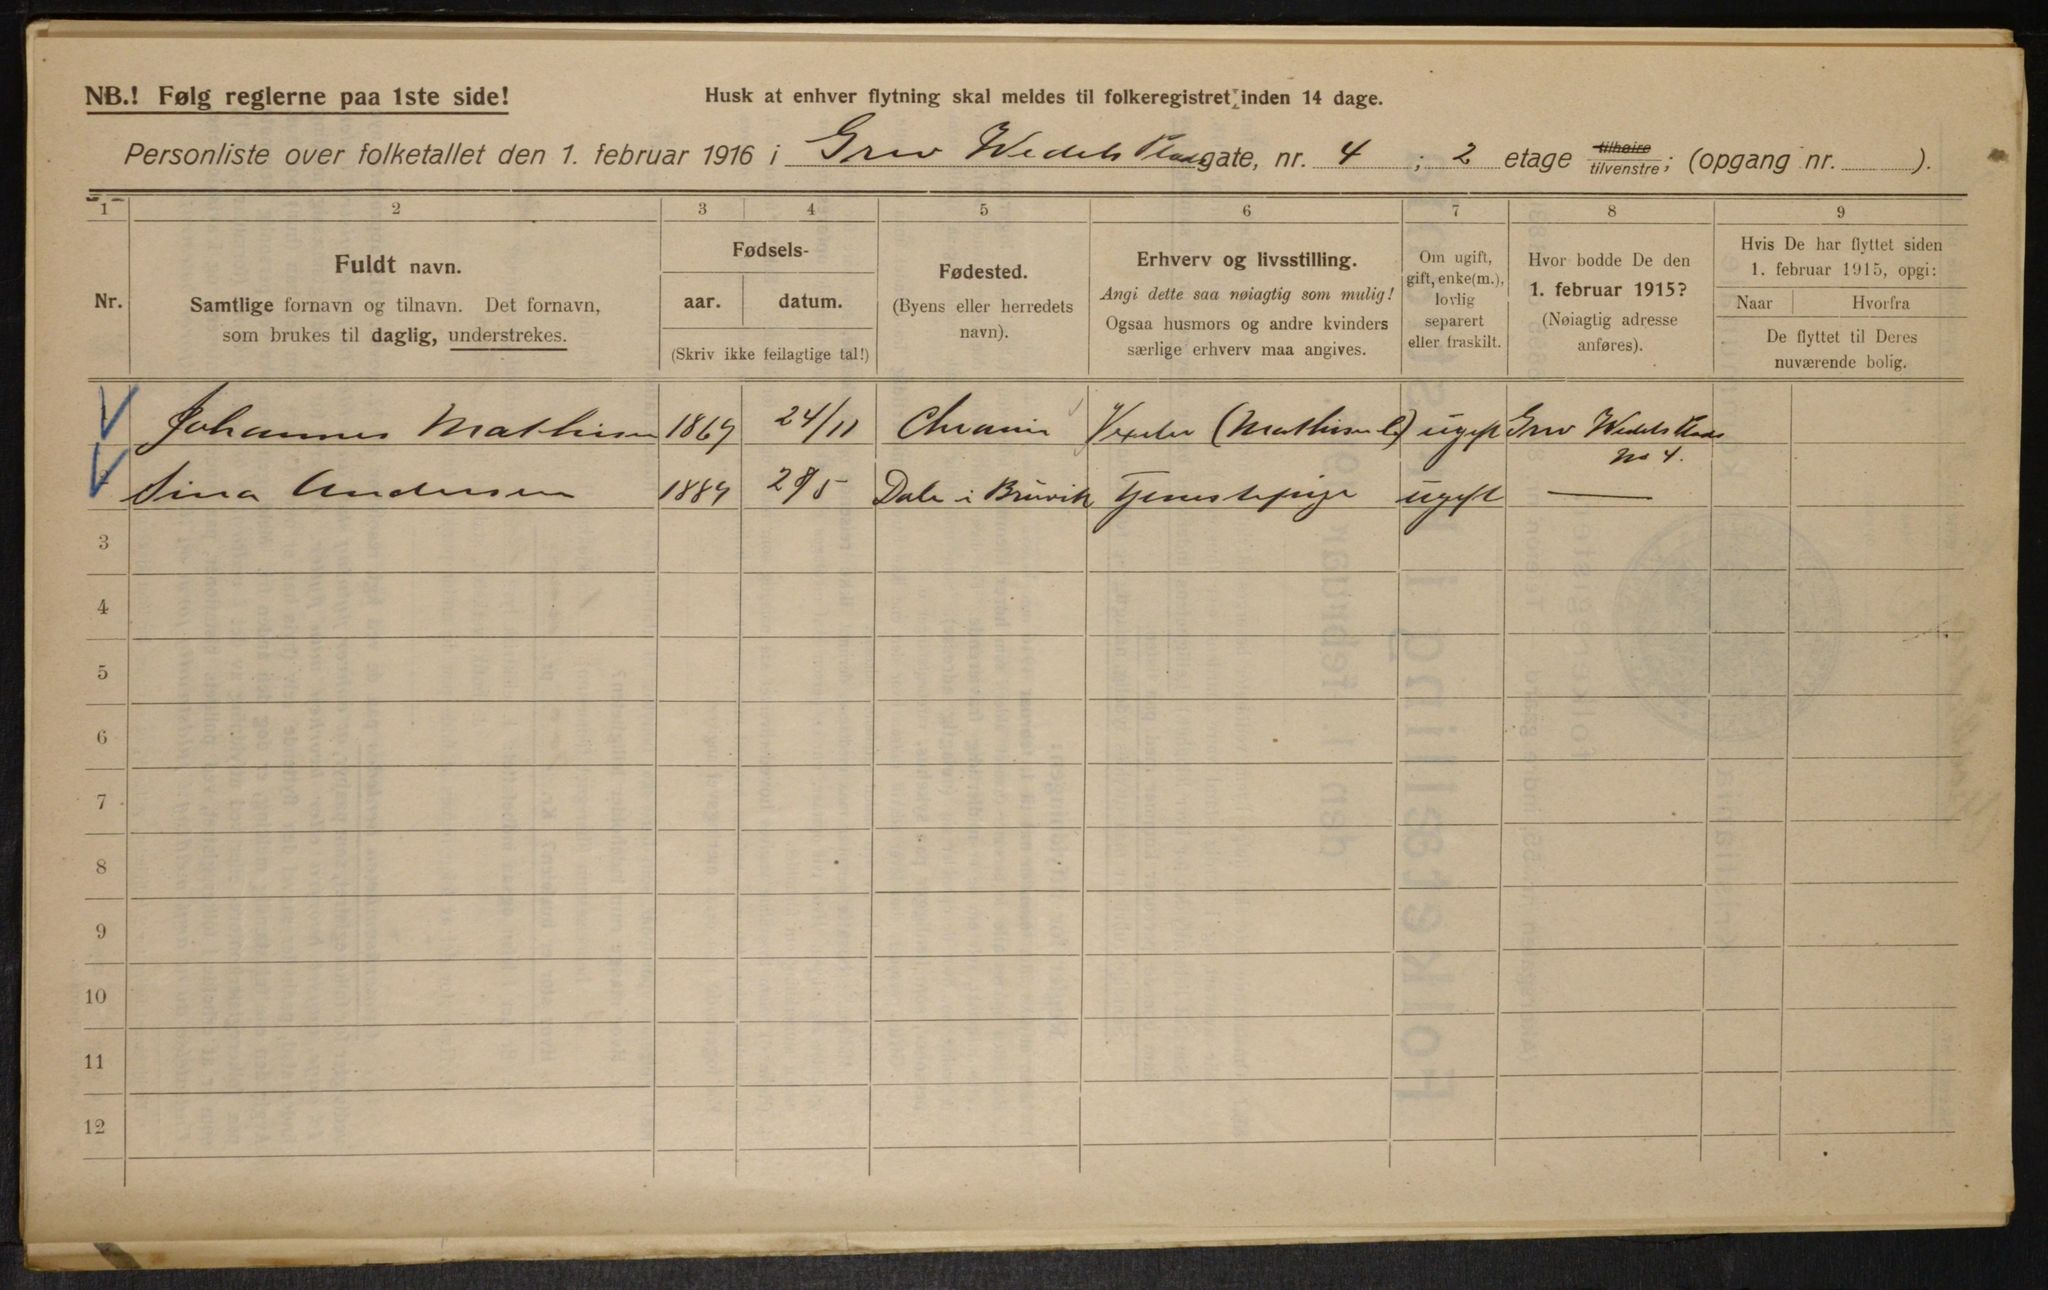 NB.! Følg reglerne paa 1ste side!
Husk at enhver flytning skal meldes til folkeregistret inden 14 dage.
Personliste over folketallet den 1. februar 1916 i Grev Wedels Plads gate, nr. 4 ; 2 etage tilhøire/tilvenstre; (opgang nr. ).
1 2 3 4 5 6 7 8 9
Nr.
Fuldt navn.
Samtlige fornavn og tilnavn. Det fornavn,
som brukes til daglig, understrekes.
Fødsels-
aar. datum.
(Skriv ikke feilagtige tal!)
Fødested.
(Byens eller herredets
navn).
Erhverv og livsstilling.
Angi dette saa nøiagtig som mulig!
Ogsaa husmors og andre kvinders
særlige erhverv maa angives.
Om ugift,
gift, enke(m.),
lovlig
separert
eller fraskilt.
Hvor bodde De den
1. februar 1915?
(Nøiagtig adresse
anføres).
Hvis De har flyttet siden
1. februar 1915, opgi:
Naar Hvorfra
De flyttet til Deres
nuværende bolig.
Johannes Mathisen 1869 24/11 Chrania (Mathisen Co) ugift Grev Wedels Plads
No 4.
Sina Andersen 1889 Dale i Bruvik Tjenestepige ugift —
3
4
5
6
7
8
9
10
11
12